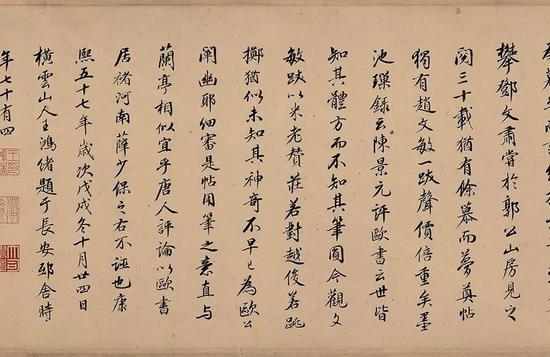 攀鄧文肅嘗於郭公山房見之
閱三十載猶有餘慕而夢奠帖
獨有趙文敏一跋聲價倍重矣墨
池璅錄云陳景元評歐書云世皆
知其體方而不知其筆圓今觀文
敏跋以米老贊莊若對越俊若跳
擲猶似未知其神奇不早已為歐公
闡幽耶細審是帖用筆之意直與
蘭亭相似宜乎唐人評論以歐書
居褚河南薛少保之右不誣也康
熙五十七年歲次戊戌冬十月廿四日
橫雲山人王鴻緒題于長安邸舍時
年七十有四